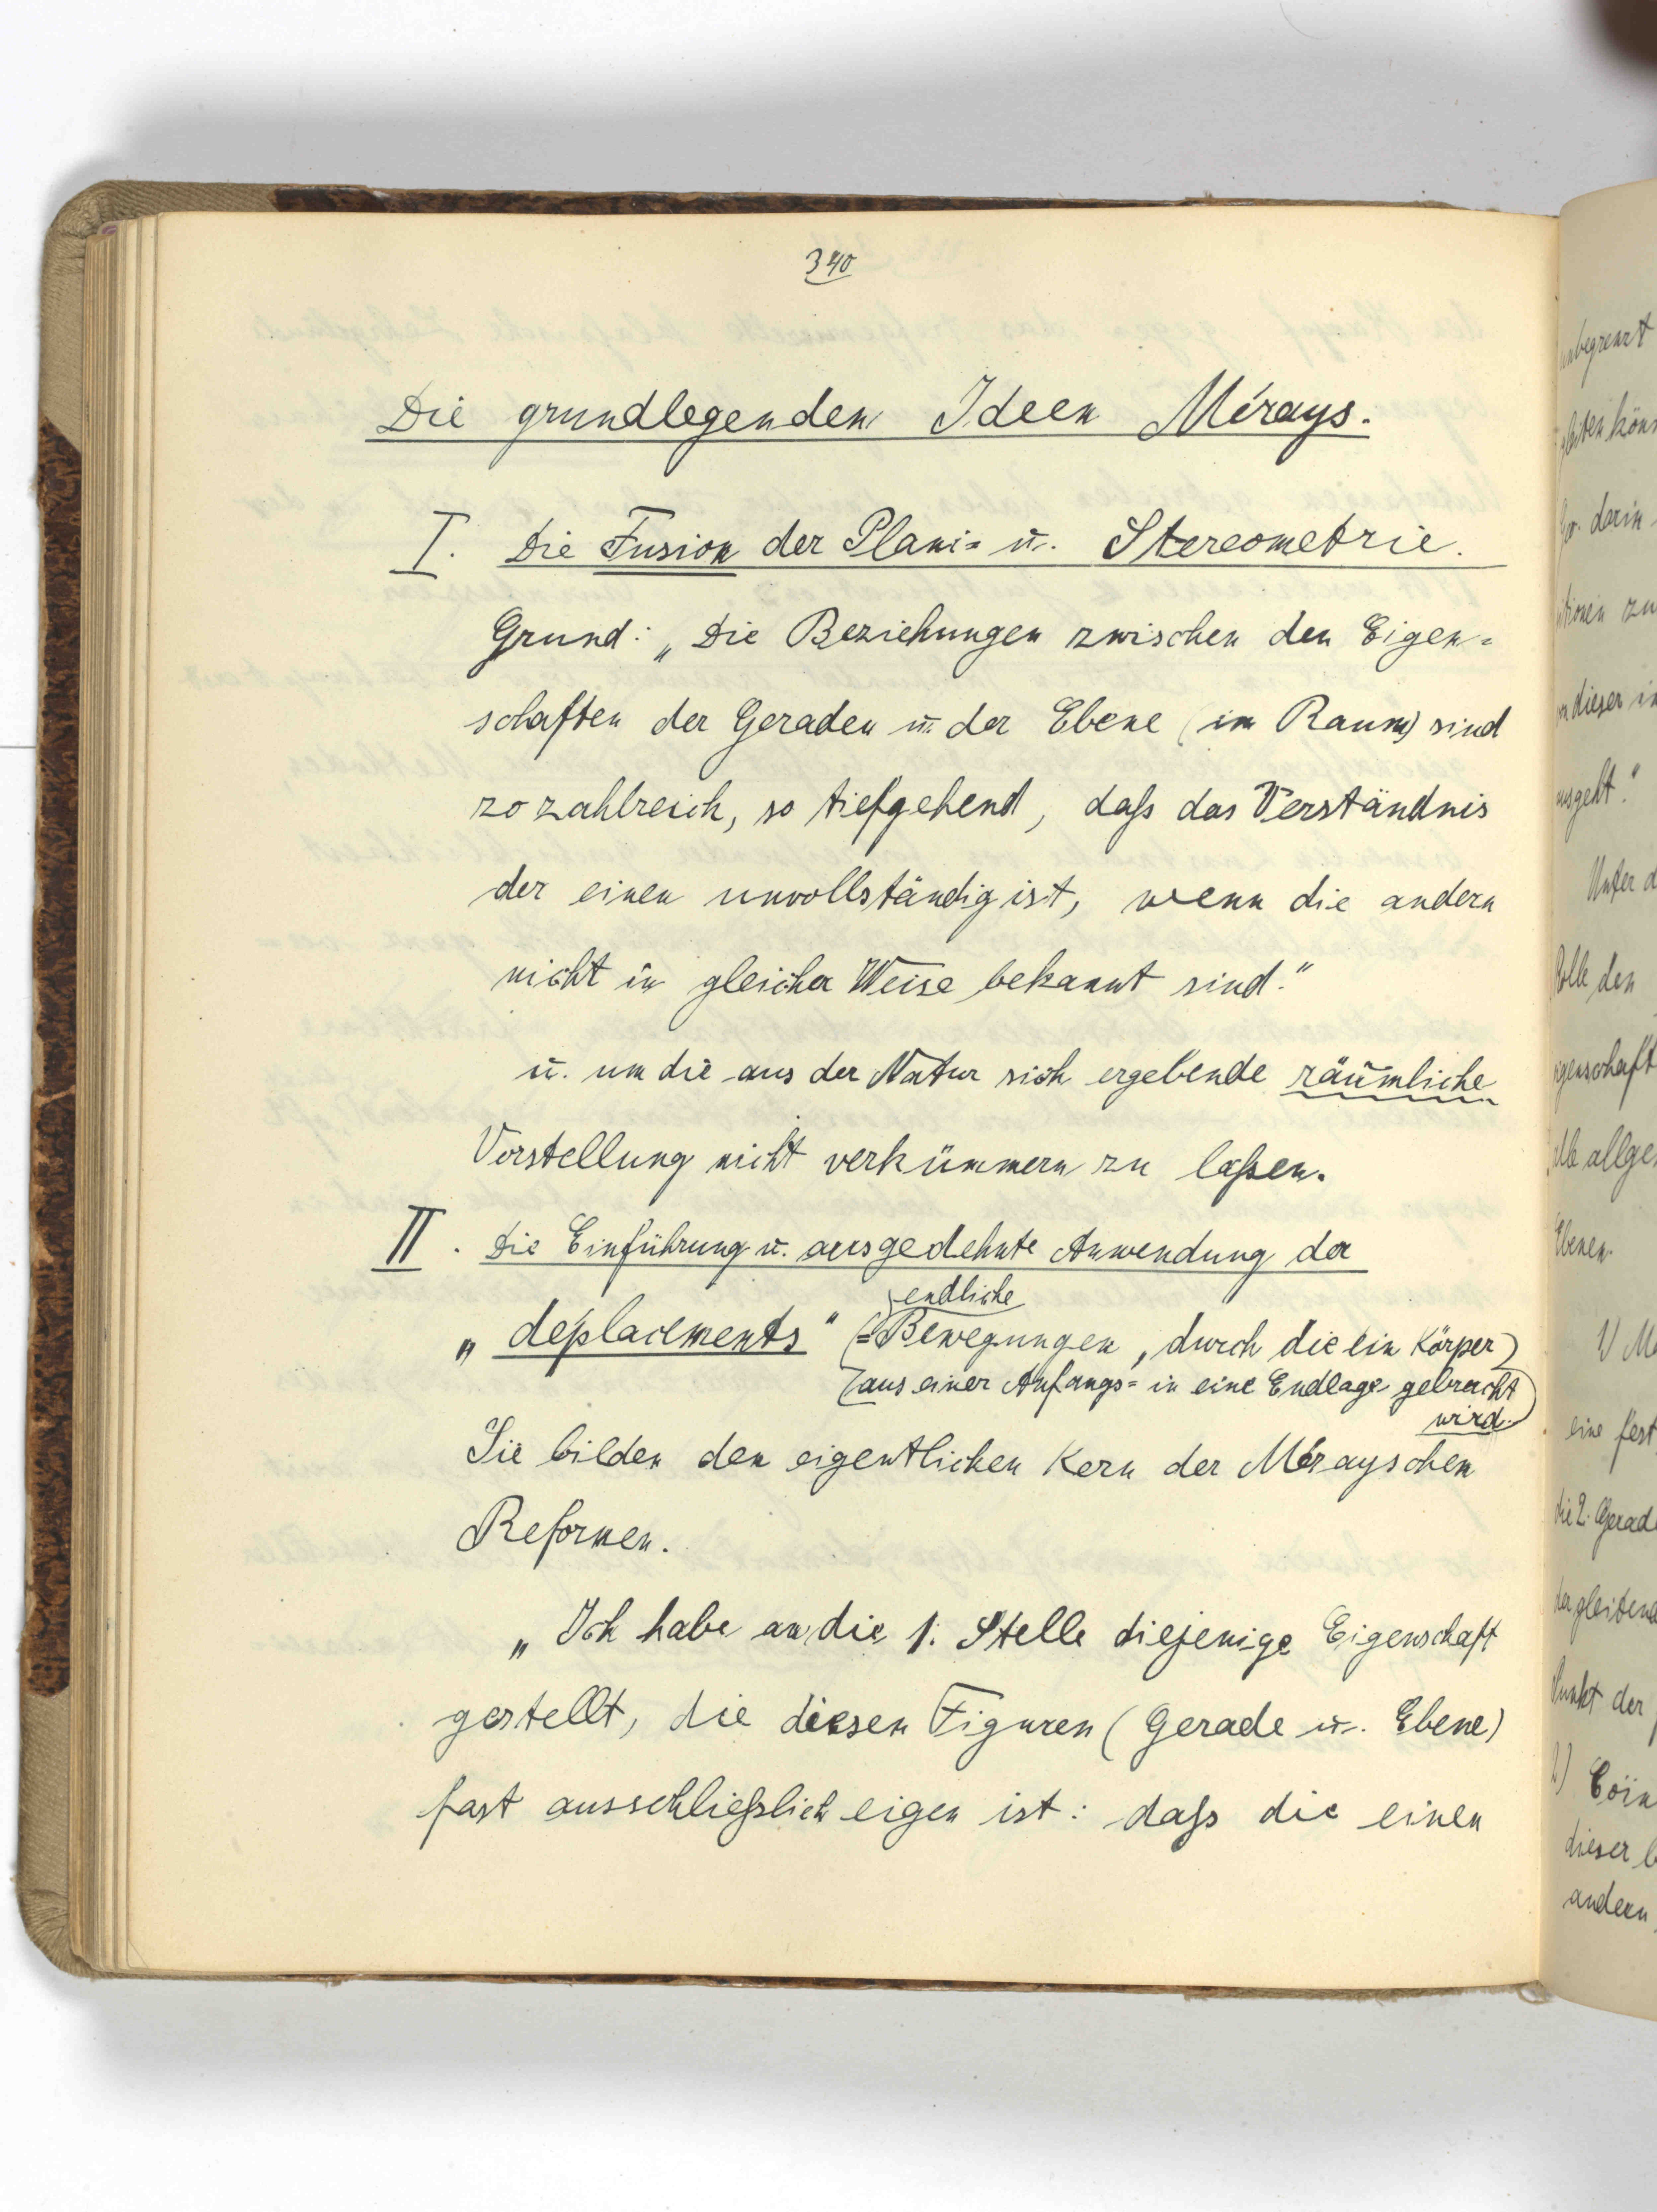 340
Die grundlegenden Ideen Mérays.
I. Die Fusion der Plani= u. Stereometrie.
Grund: „Die Beziehungen zwischen den Eigen=
schaften der Geraden u. der Ebene (im Raum) sind
zo zahlreich, so tiefgehend, daß das Verständnis
der einen unvollständig ist, wenn die andern
nicht in gleicher Weise bekannt sind."
u. um die aus der Natur sich ergebende räumliche
Vorstellung nicht verkümmern zu laßen.
II. Die Einführung u. ausgedehnte Anwendung der
endliche
„deplacements" (=Bewegungen, durch die ein Körper
aus einer Anfangs= in eine Endlage gebracht
wird.)
Sie bilden den eigentlichen Kern der Mérayschen
Reformen.
„Ich habe an die 1. Stelle diejenige Eigenschaft
gestellt, die diesen Figuren (Gerade u. Ebene)
fast ausschließlich eigen ist: daß die einen
unbegrenzt
darin
zu
dieser
ausgeht."
Unter
Rolle den
allge
Ebenen.
1)
eine fest
die 2. Gerad
gleitend
Punkt der
2) Coin
dieser
andern